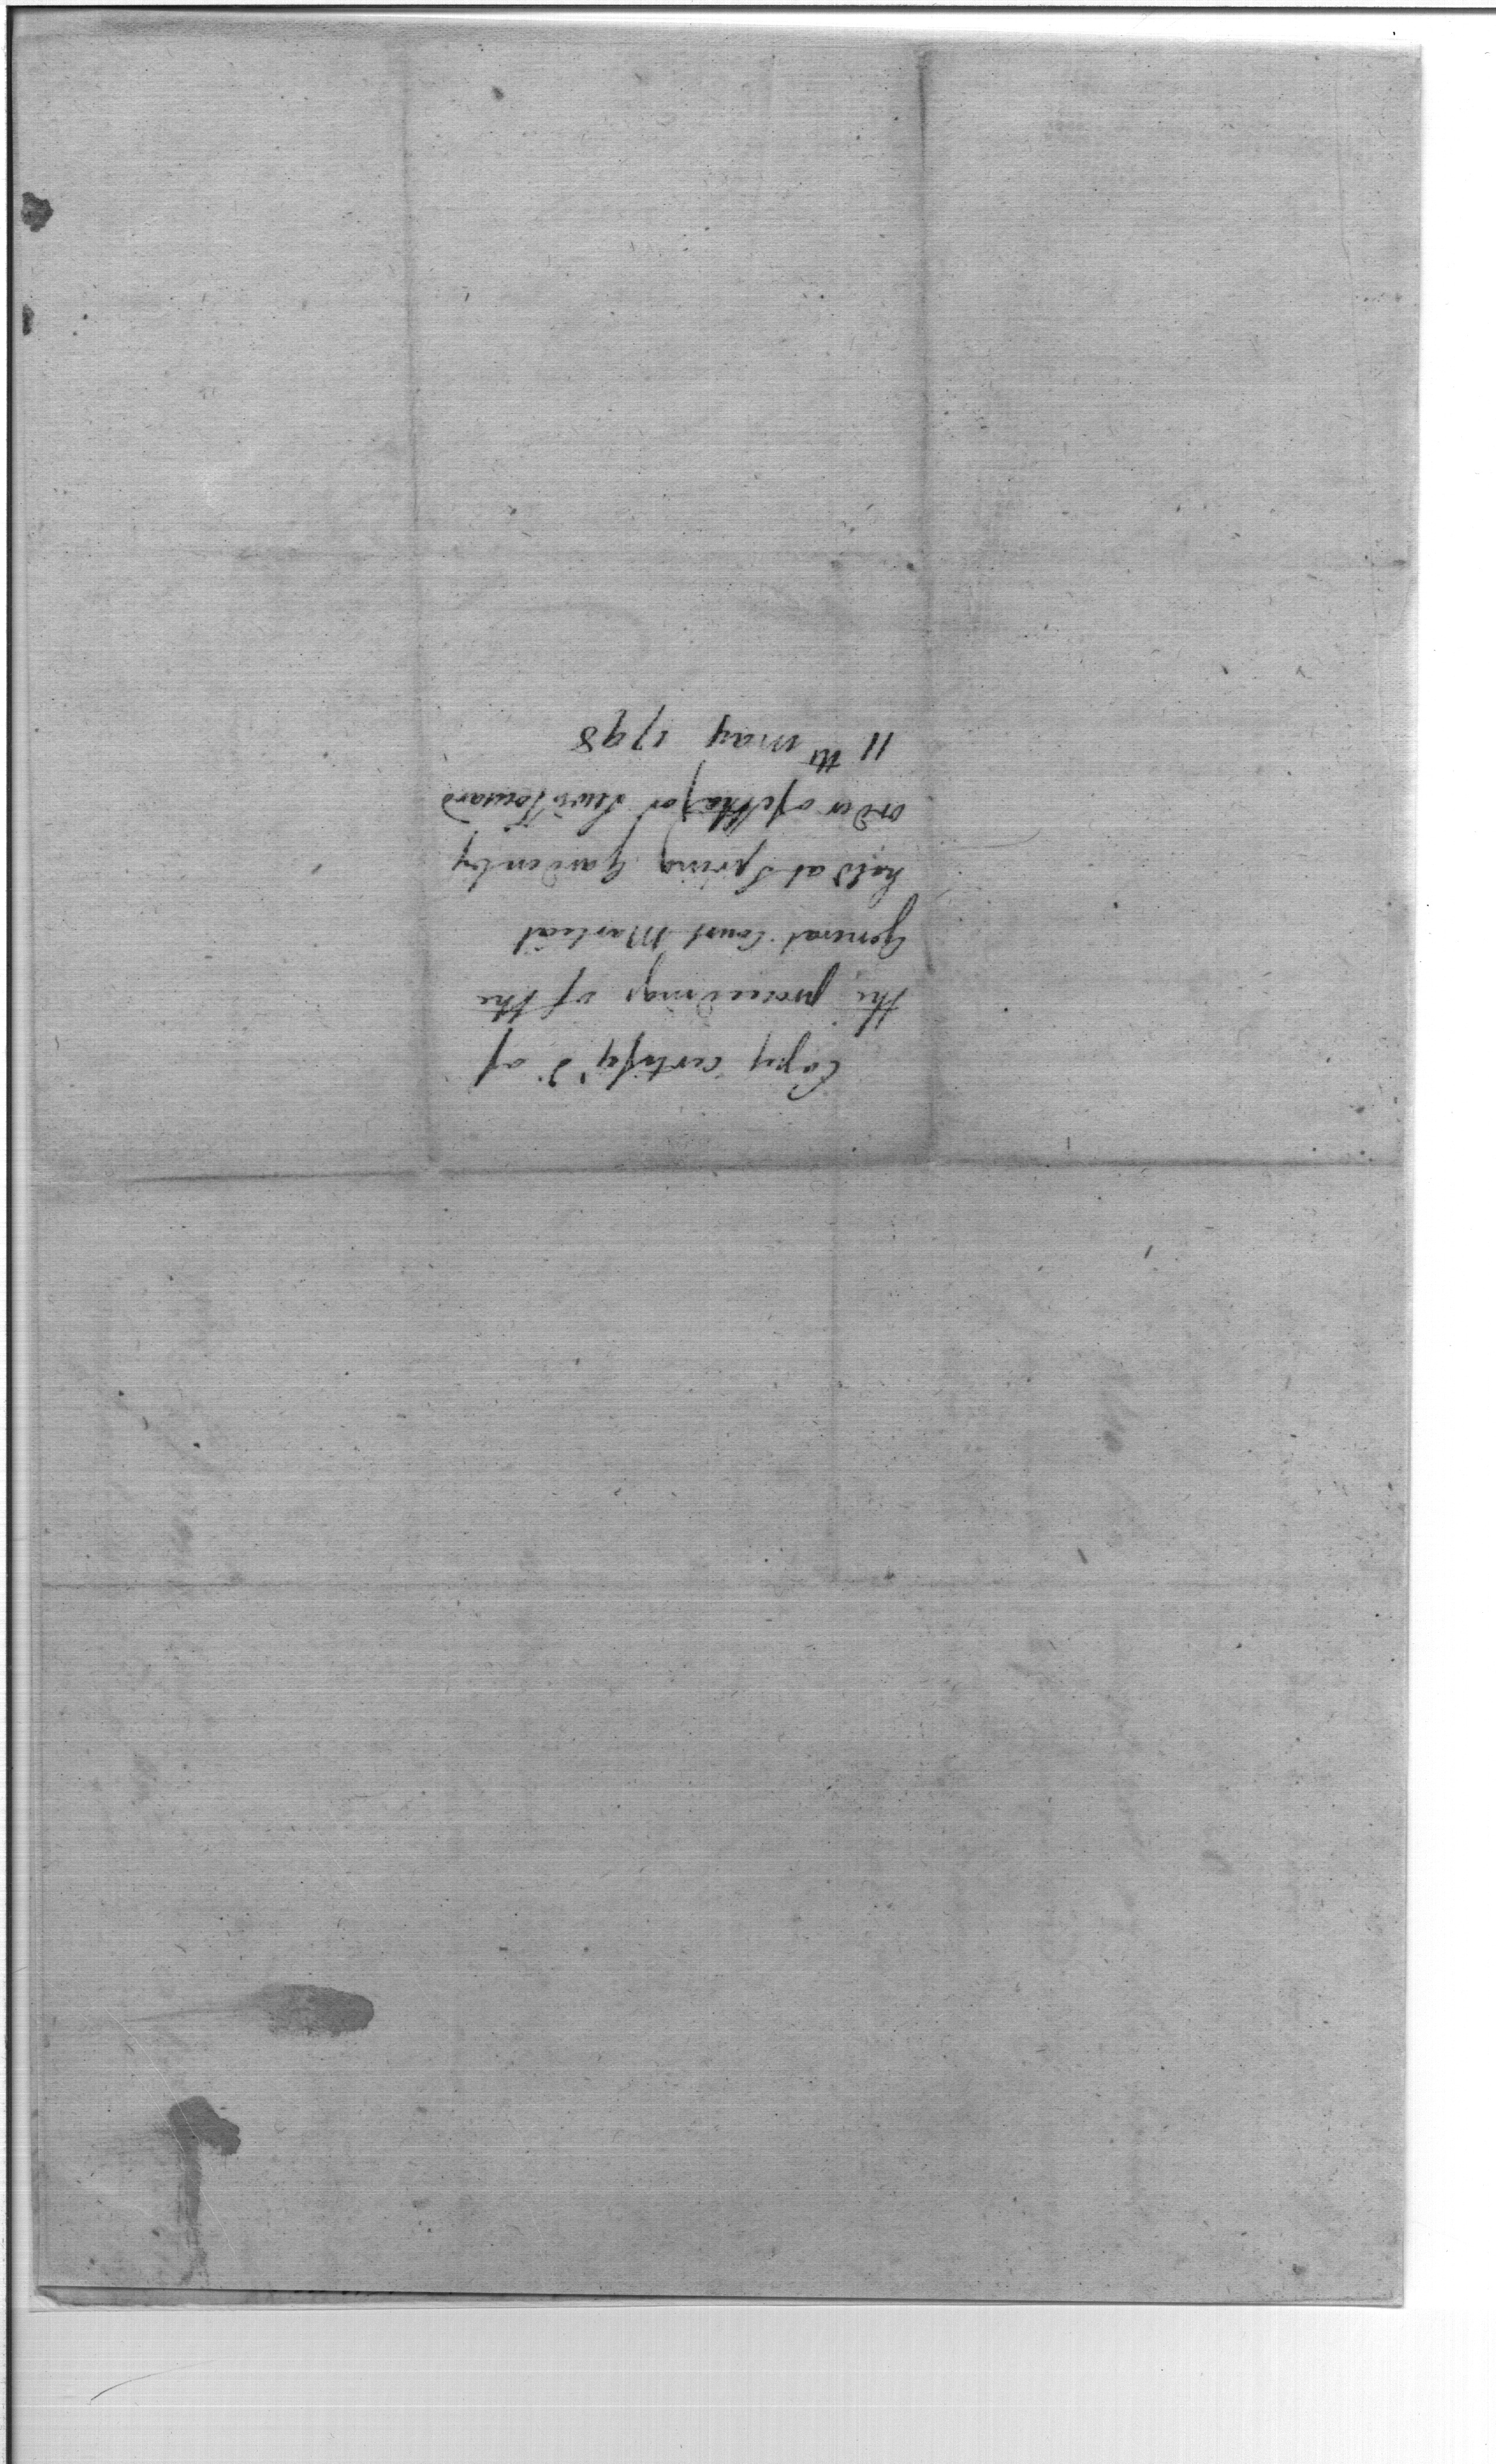 Copy certify'd of
the proceedings of the
General Court Martial
held at Spring Garden by
order of Major Lewis Tousard
11th May 1798